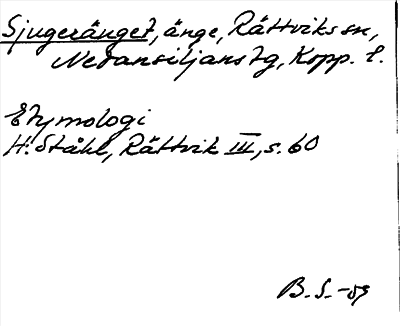 Sjugeränget, änge, Rättviks sn,
Nedansiljans tg, Kopp. l.
Etymologi
H. Ståhl, Rättvik III, s. 60
B. S. -59